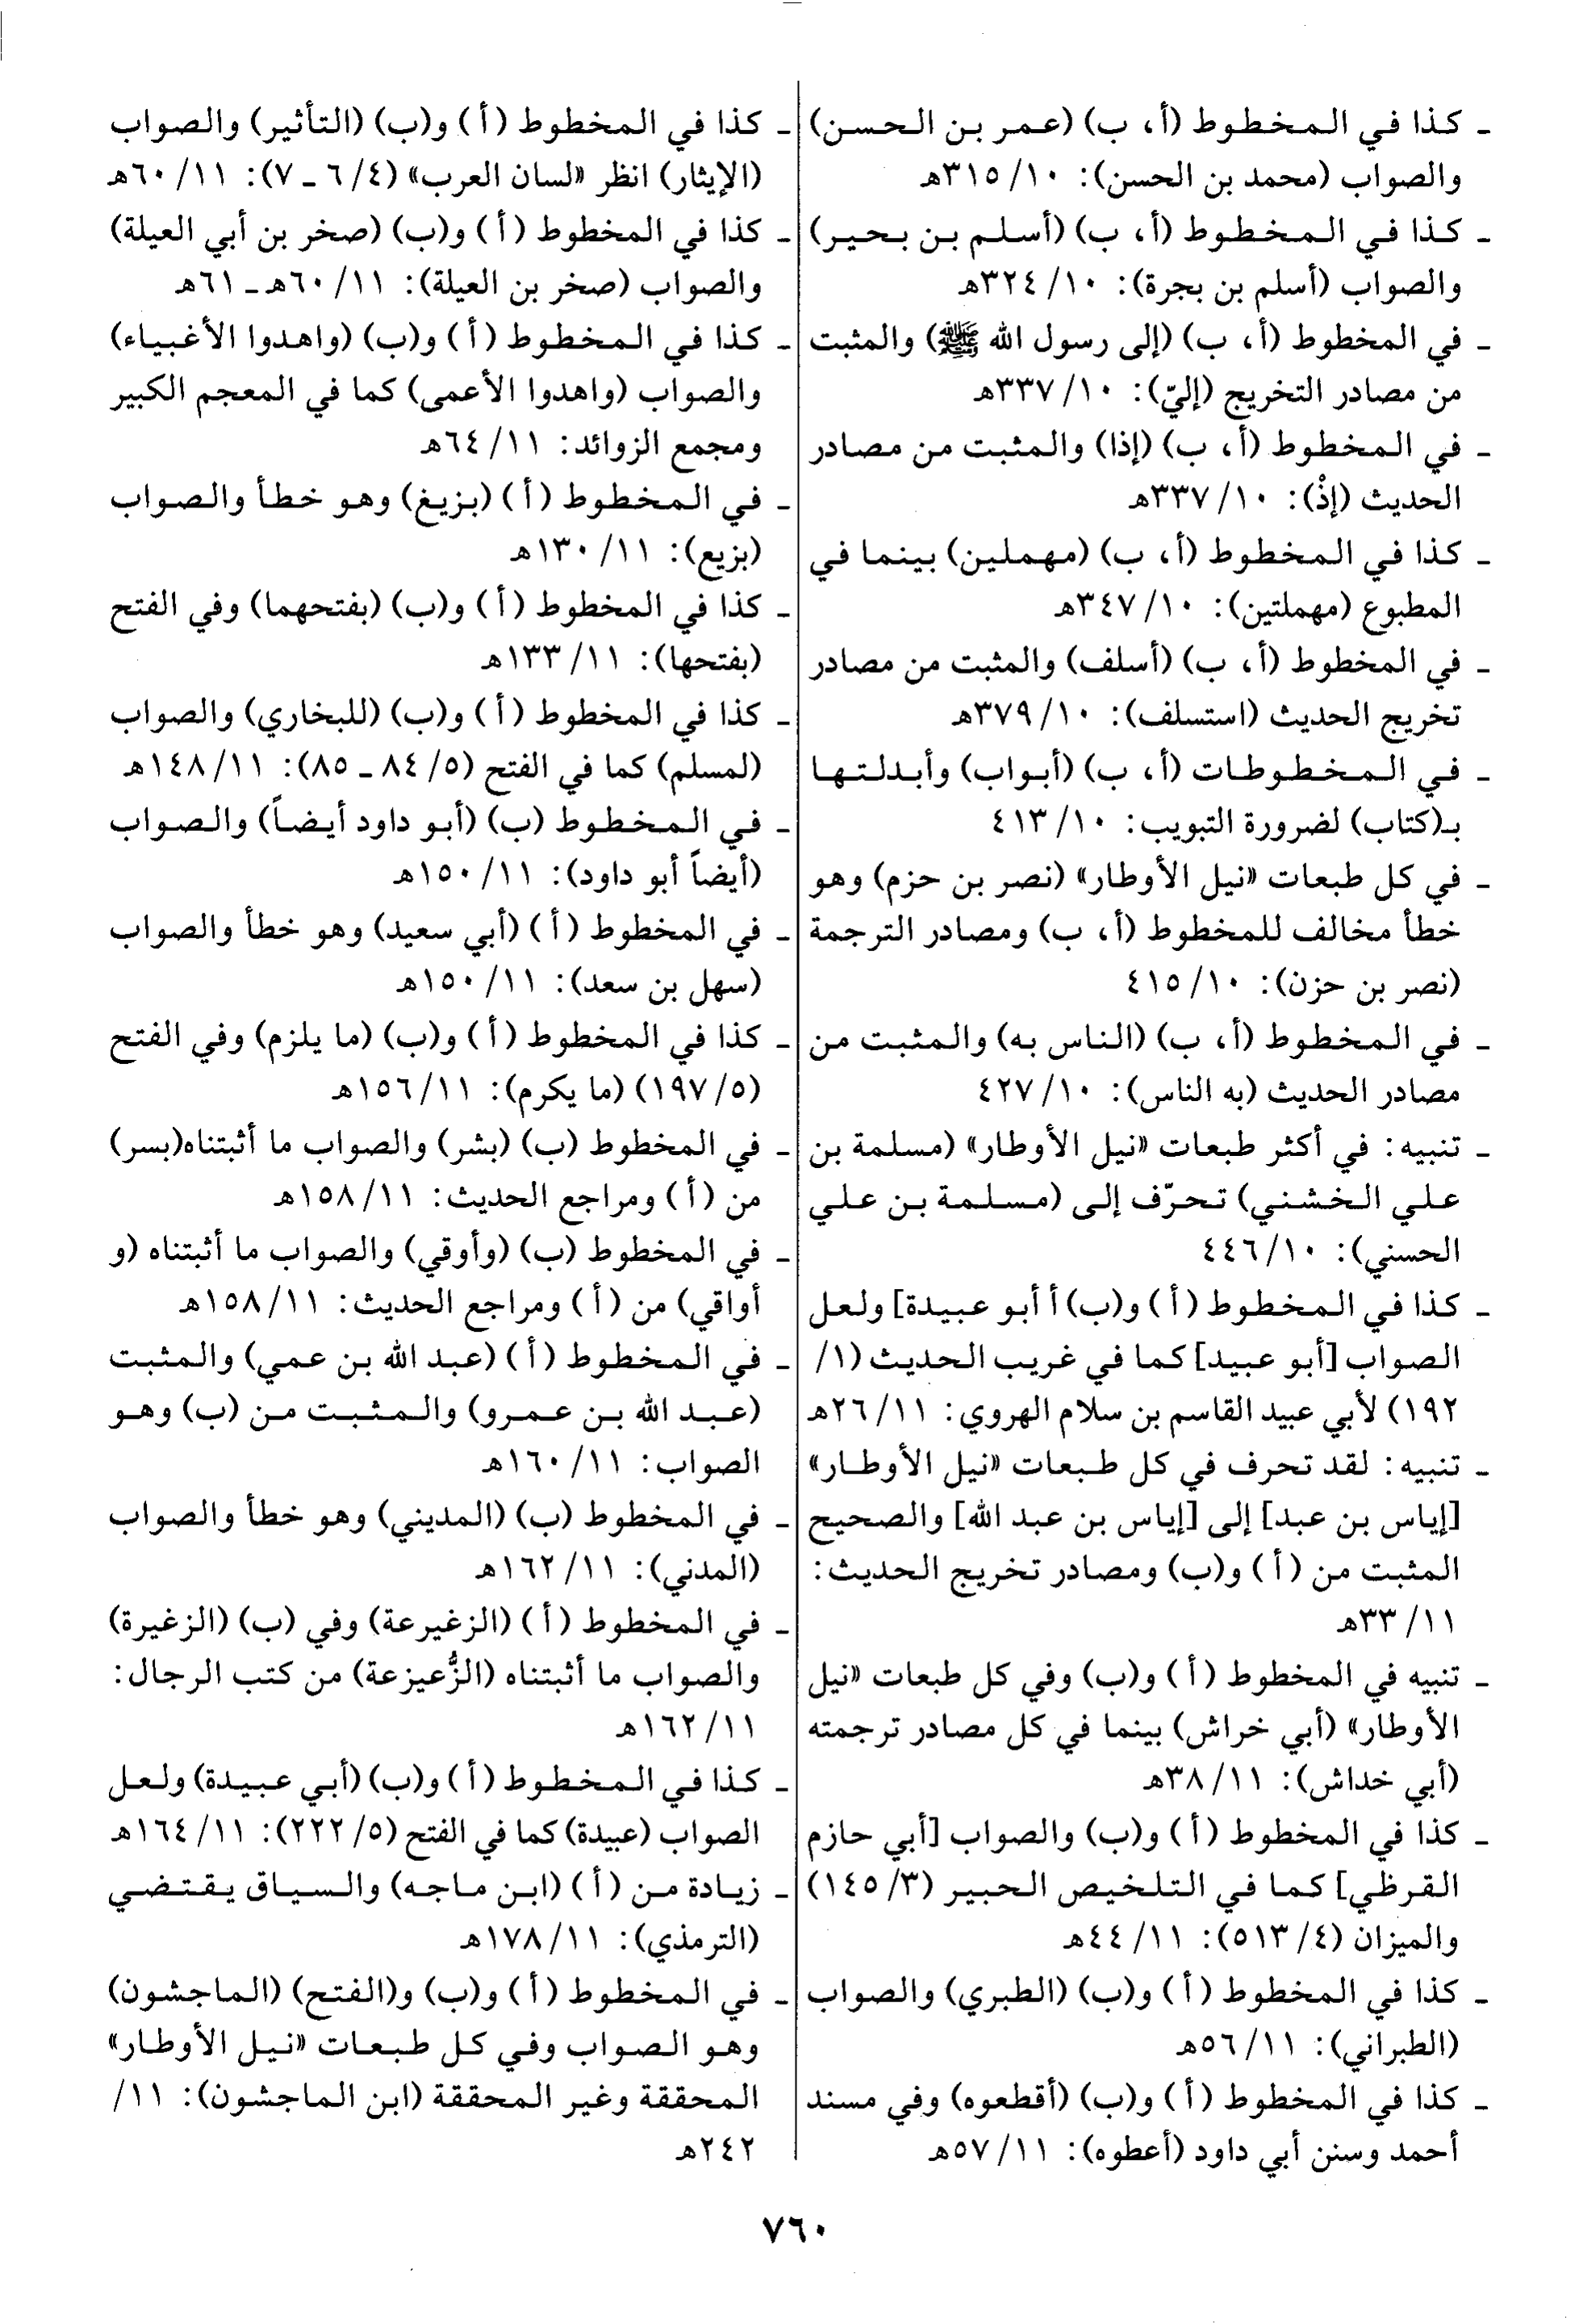 ـ كذا في المخطوط (أ، ب) (عمر بن الحسن)
والصواب (محمد بن الحسن): ١٠/ ٣١٥هـ
ـ كذا في المخطوط (أ، ب) (أسلم بن بحير)
والصواب (أسلم بن بجرة): ١٠/ ٣٢٤هـ
ـ في المخطوط (أ، ب) (إلى رسول الله ﷺ) والمثبت
من مصادر التخريج (إليّ): ١٠/ ٣٣٧هـ
ـ في المخطوط (أ، ب) (إذا) والمثبت من مصادر
الحديث (إذْ): ١٠/ ٣٣٧هـ
ـ كذا في المخطوط (أ، ب) (مهملين) بينما في
المطبوع (مهملتين): ١٠/ ٣٤٧هـ
ـ في المخطوط (أ، ب) (أسلف) والمثبت من مصادر
تخريج الحديث (استسلف): ١٠/ ٣٧٩هـ
ـ في المخطوطات (أ، ب) (أبواب) وأبدلتها
بـ(كتاب) لضرورة التبويب: ١٠/ ٤١٣
ـ في كل طبعات «نيل الأوطار» (نصر بن حزم) وهو
خطأ مخالف للمخطوط (أ، ب) ومصادر الترجمة
(نصر بن حزن): ١٠/ ٤١٥
ـ في المخطوط (أ، ب) (الناس به) والمثبت من
مصادر الحديث (به الناس): ١٠/ ٤٢٧
ـ تنبيه: في أكثر طبعات «نيل الأوطار» (مسلمة بن
علي الخشني) تحرّف إلى (مسلمة بن علي
الحسني): ١٠/ ٤٤٦
ـ كذا في المخطوط (أ) و(ب) أ أبو عبيدة] ولعل
الصواب [أبو عبيد] كما في غريب الحديث (١/
١٩٢) لأبي عبيد القاسم بن سلام الهروي: ١١/ ٢٦هـ
ـ تنبيه: لقد تحرف في كل طبعات «نيل الأوطار»
[إياس بن عبد] إلى [إياس بن عبد الله] والصحيح
المثبت من (أ) و(ب) ومصادر تخريج الحديث:
١١/ ٣٣هـ
ـ تنبيه في المخطوط (أ) و(ب) وفي كل طبعات «نيل
الأوطار» (أبي خراش) بينما في كل مصادر ترجمته
(أبي خداش): ١١/ ٣٨هـ
ـ كذا في المخطوط (أ) و(ب) والصواب [أبي حازم
القرظي] كما في التلخيص الحبير (٣/ ١٤٥)
والميزان (٤/ ٥١٣): ١١/ ٤٤هـ
ـ كذا في المخطوط (أ) و(ب) (الطبري) والصواب
(الطبراني): ١١/ ٥٦هـ
ـ كذا في المخطوط (أ) و(ب) (أقطعوه) وفي مسند
أحمد وسنن أبي داود (أعطوه): ١١/ ٥٧هـ
ـ كذا في المخطوط (أ) و(ب) (التأثير) والصواب
(الإيثار) انظر «لسان العرب» (٤/ ٦ ـ ٧): ١١/ ٦٠هـ
ـ كذا في المخطوط (أ) و(ب) (صخر بن أبي العيلة)
والصواب (صخر بن العيلة): ١١/ ٦٠هـ ـ ٦١هـ
ـ كذا في المخطوط (أ) و(ب) (واهدوا الأغبياء)
والصواب (واهدوا الأعمى) كما في المعجم الكبير
ومجمع الزوائد: ١١/ ٦٤هـ
ـ في المخطوط (أ) (بزيغ) وهو خطأ والصواب
(بزيع): ١١/ ١٣٠هـ
ـ كذا في المخطوط (أ) و(ب) (بفتحهما) وفي الفتح
(بفتحها): ١١/ ١٣٣هـ
ـ كذا في المخطوط (أ) و(ب) (للبخاري) والصواب
(لمسلم) كما في الفتح (٥/ ٨٤ ـ ٨٥): ١١/ ١٤٨هـ
ـ في المخطوط (ب) (أبو داود أيضاً) والصواب
(أيضاً أبو داود): ١١/ ١٥٠هـ
ـ في المخطوط (أ) (أبي سعيد) وهو خطأ والصواب
(سهل بن سعد): ١١/ ١٥٠هـ
ـ كذا في المخطوط (أ) و(ب) (ما يلزم) وفي الفتح
(٥/ ١٩٧) (ما يكرم): ١١/ ١٥٦هـ
ـ في المخطوط (ب) (بشر) والصواب ما أثبتناه(بسر)
من (أ) ومراجع الحديث: ١١/ ١٥٨هـ
ـ في المخطوط (ب) (وأوقي) والصواب ما أثبتناه (و
أواقي) من (أ) ومراجع الحديث: ١١/ ١٥٨هـ
ـ في المخطوط (أ) (عبد الله بن عمي) والمثبت
(عبد الله بن عمرو) والمثبت من (ب) وهو
الصواب: ١١/ ١٦٠هـ
ـ في المخطوط (ب) (المديني) وهو خطأ والصواب
(المدني): ١١/ ١٦٢هـ
ـ في المخطوط (أ) (الزغيرعة) وفي (ب) (الزغيرة)
والصواب ما أثبتناه (الزُّعيزعة) من كتب الرجال:
١١/ ١٦٢هـ
ـ كذا في المخطوط (أ) و(ب) (أبي عبيدة) ولعل
الصواب (عبيدة) كما في الفتح (٥/ ٢٢٢): ١١/ ١٦٤هـ
ـ زيادة من (أ) (ابن ماجه) والسياق يقتضي
(الترمذي): ١١/ ١٧٨هـ
ـ في المخطوط (أ) و(ب) و(الفتح) (الماجشون)
وهو الصواب وفي كل طبعات «نيل الأوطار»
المحققة وغير المحققة (ابن الماجشون): ١١/
٢٤٢هـ
٧٦٠